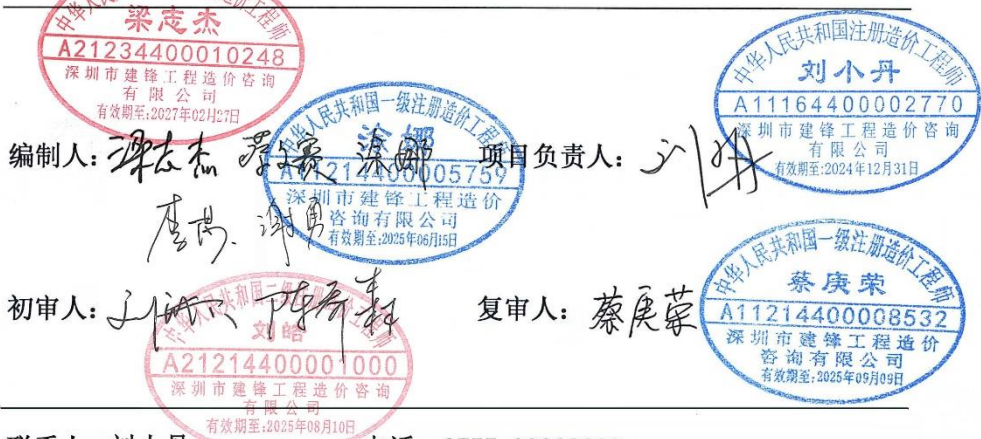 梁志杰
A21234400010248
深圳市建锋工程造价咨询
有限公司
有效期至:2027年02月27日
中华人民共和国注册造价工程师
刘小丹
A11164400002770
深圳市建锋工程造价咨询
有限公司
有效期至:2024年12月31日
编制人: 梁志杰
项目负责人:
中华人民共和国一级注册造价工程师
A11214400005759
深圳市建锋工程造价
咨询有限公司
有效期至:2025年06月15日
初审人:
刘皓
A21214400001000
深圳市建锋工程造价咨询
有限公司
有效期至:2025年08月10日
复审人: 蔡庚荣
中华人民共和国一级注册造价工程师
蔡庚荣
A11214400008532
深圳市建锋工程造价
咨询有限公司
有效期至:2025年09月09日